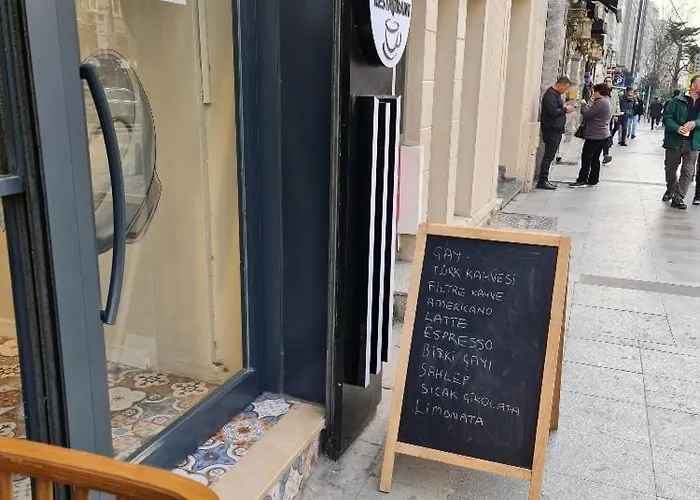 RESTAURANT
ÇAY
TÜRK KAHVESİ
FİLTRE KAHVE
AMERİCANO
LATTE
ESPRESSO
BİTKİ ÇAYI
SAHLEP
SICAK ÇİKOLATA
LİMONATA